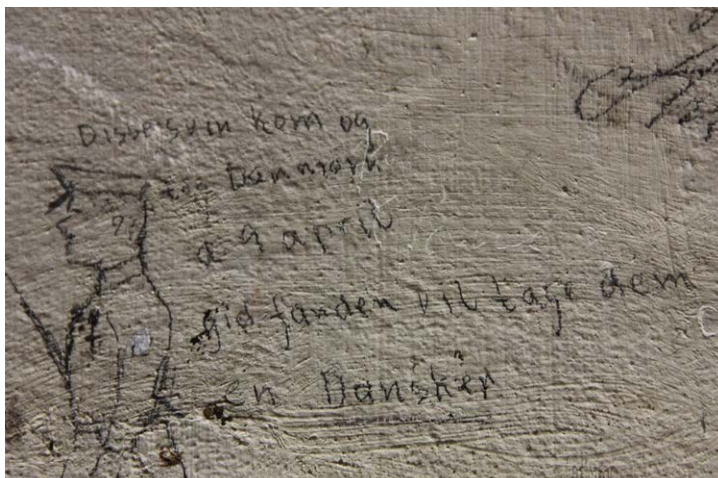 Disse svin kom og
tog Danmark
d 9 april
gid fanden vil tage dem
en Dansker